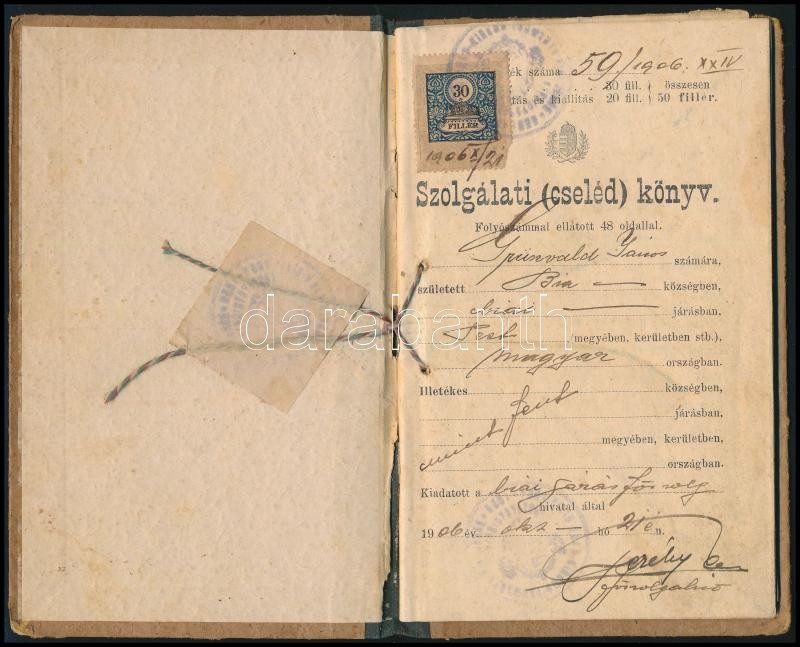 ék száma 59/1906. XXIV
30 fill. összesen
tás és kiállítás 20 fill. 50 fillér.
30
FILLÉR
1906 X/21
Szolgálati (cseléd) könyv.
Folyószámmal ellátott 48 oldallal.
Grünvald János számára,
született Bia — községben,
biai — járásban,
Pest (megyében, kerületben stb.),
magyar országban.
Illetékes községben,
járásban,
mint fent
megyében, kerületben,
országban.
Kiadatott a biai járás főszolg
hivatal által
1906 év okt — hó 21 én.
főszolgabíró
darabanth